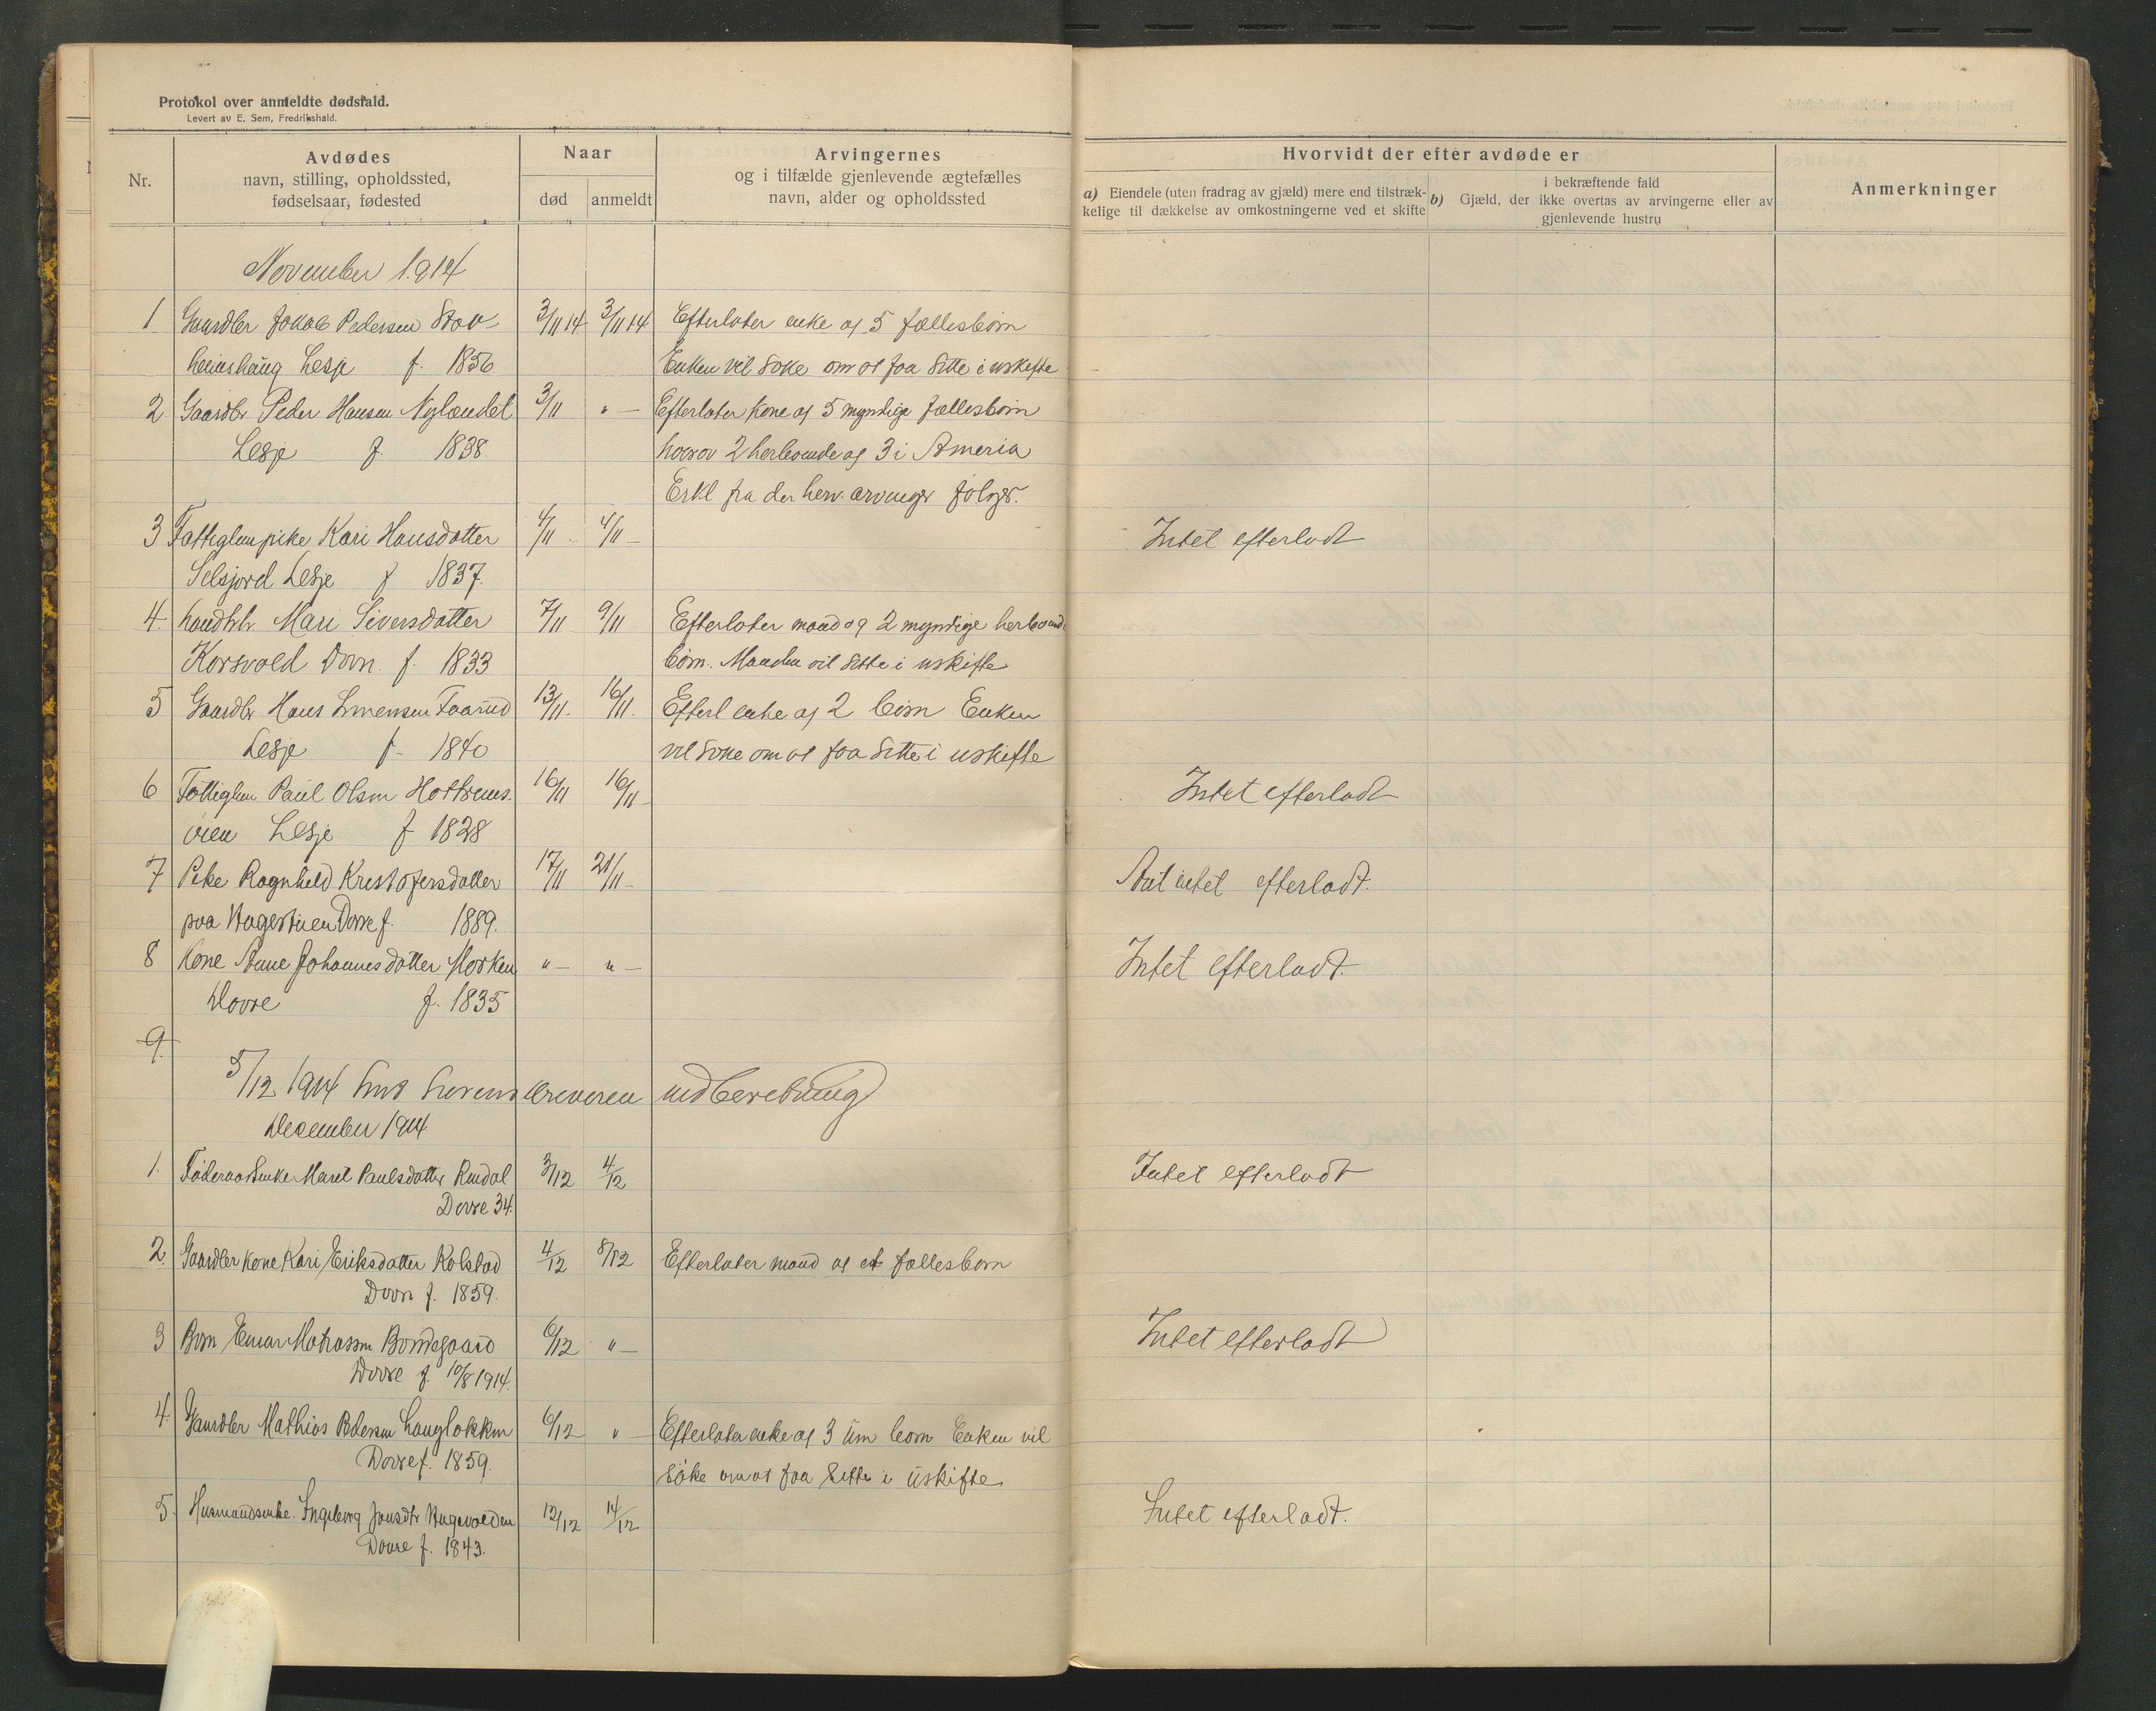 Protokol over anmeldte dødsfald.
Levert av E. Sem, Fredrikshald.
Nr.
Avdødes
navn, stilling, opholdssted,
fødselsaar, fødested
Naar
død
anmeldt
Arvingernes
og i tilfælde gjenlevende ægtefælles
navn, alder og opholdssted
Hvorvidt der efter avdøde er
a) Eiendele (uten fradrag av gjæld) mere end tilstræk-
kelige til dækkelse av omkostningerne ved et skifte
i bekræftende fald
b) Gjæld, der ikke overtas av arvingerne eller av
gjenlevende hustru
Anmerkninger
November 1914
1 Gaardbr Jakob Pedersen 3/11 14 3/11 14 Efterlater enke og 5 fællesbörn
Lesje f. 1856 Enken vil söke om at faa sitte i uskifte
2 Gaardbr Peder Hansen Nylændet 3/11 " — Efterlater kone og 5 myndige fællesbörn
Lesje f. 1838 hvorav 2 herboende og 3 i Ameria
Erkl fra de herv. arvinger följer.
3 Fattiglem pike Kari Hansdatter 4/11 4/11 — Intet efterladt
Selsjord Lesje f 1837.
4 Mari Siversdatter 7/11 9/11 Efterlater mand og 2 myndige herboende
Korsvold Dovre f. 1833 börn. Manden vil sitte i uskifte
5 Gaardbr Hans 13/11. 16/11. Efterl enke og 2 börn Enken
Lesje f. 1840 vil söke om at faa sitte i uskifte
6 Fattiglem Paul Olsen 16/11 16/11 — Intet efterladt
öien Lesje f 1828
7 Pike Ragnhild Kristofersdatter 17/11 21/11 — Intet efterladt.
paa Hagestuen Dovre f. 1889.
8 Kone Anne Johannesdatter Morken " — " — Intet efterladt.
Dovre f. 1835
9.
5/12 1914 indberetning
December 1914
1. Föderaadsenke Marit Paulsdatter Rindal 3/12 4/12 Intet efterladt
Dovre 34.
2. Gaardbr kone Kari Eriksdatter Kolstad 4/12 8/12 Efterlater mand og et fællesbarn
Dovre f. 1859.
3 Barn Einar Bondegaard 6/12 " — Intet efterladt
Dovre f. 10/8 1914.
4. Gaardbr Mathias Pedersen Langlökken 6/12 " — Efterlater enke og 3 um börn Enken vil
Dovre f. 1859. söke om at faa sitte i uskifte
5. Husmandsenke. Ingeborg Jonsdtr Hagevolden 12/12 14/12 Intet efterladt.
Dovre f. 1843.